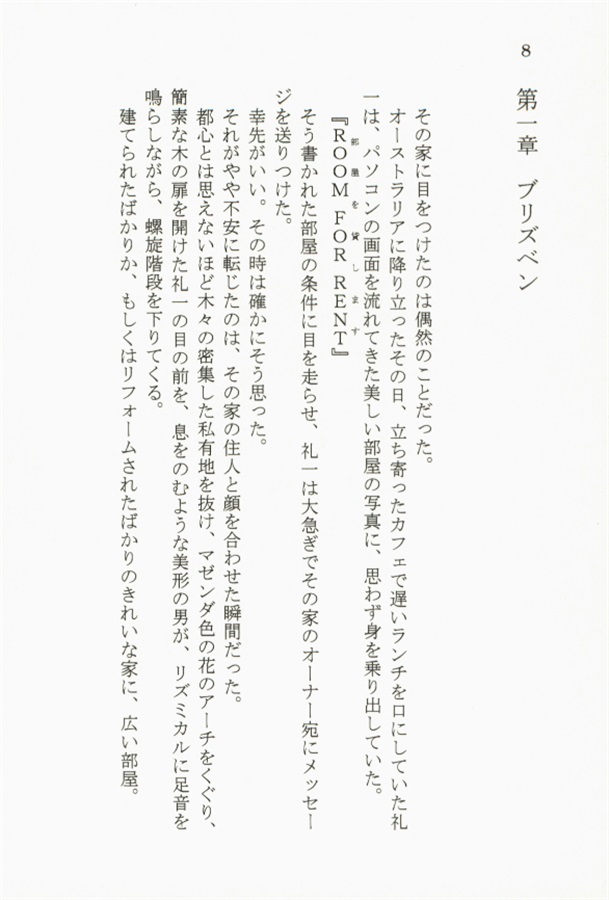 8
第一章　ブリズベン
その家に目をつけたのは偶然のことだった。
オーストラリアに降り立ったその日、立ち寄ったカフェで遅いランチを口にしていた礼
一は、パソコンの画面を流れてきた美しい部屋の写真に、思わず身を乗り出していた。
部屋を貸します
『ROOM FOR RENT』
そう書かれた部屋の条件に目を走らせ、礼一は大急ぎでその家のオーナー宛にメッセー
ジを送りつけた。
幸先がいい。その時は確かにそう思った。
それがやや不安に転じたのは、その家の住人と顔を合わせた瞬間だった。
都心とは思えないほど木々の密集した私有地を抜け、マゼンダ色の花のアーチをくぐり、
簡素な木の扉を開けた礼一の目の前を、息をのむような美形の男が、リズミカルに足音を
鳴らしながら、螺旋階段を下りてくる。
建てられたばかりか、もしくはリフォームされたばかりのきれいな家に、広い部屋。